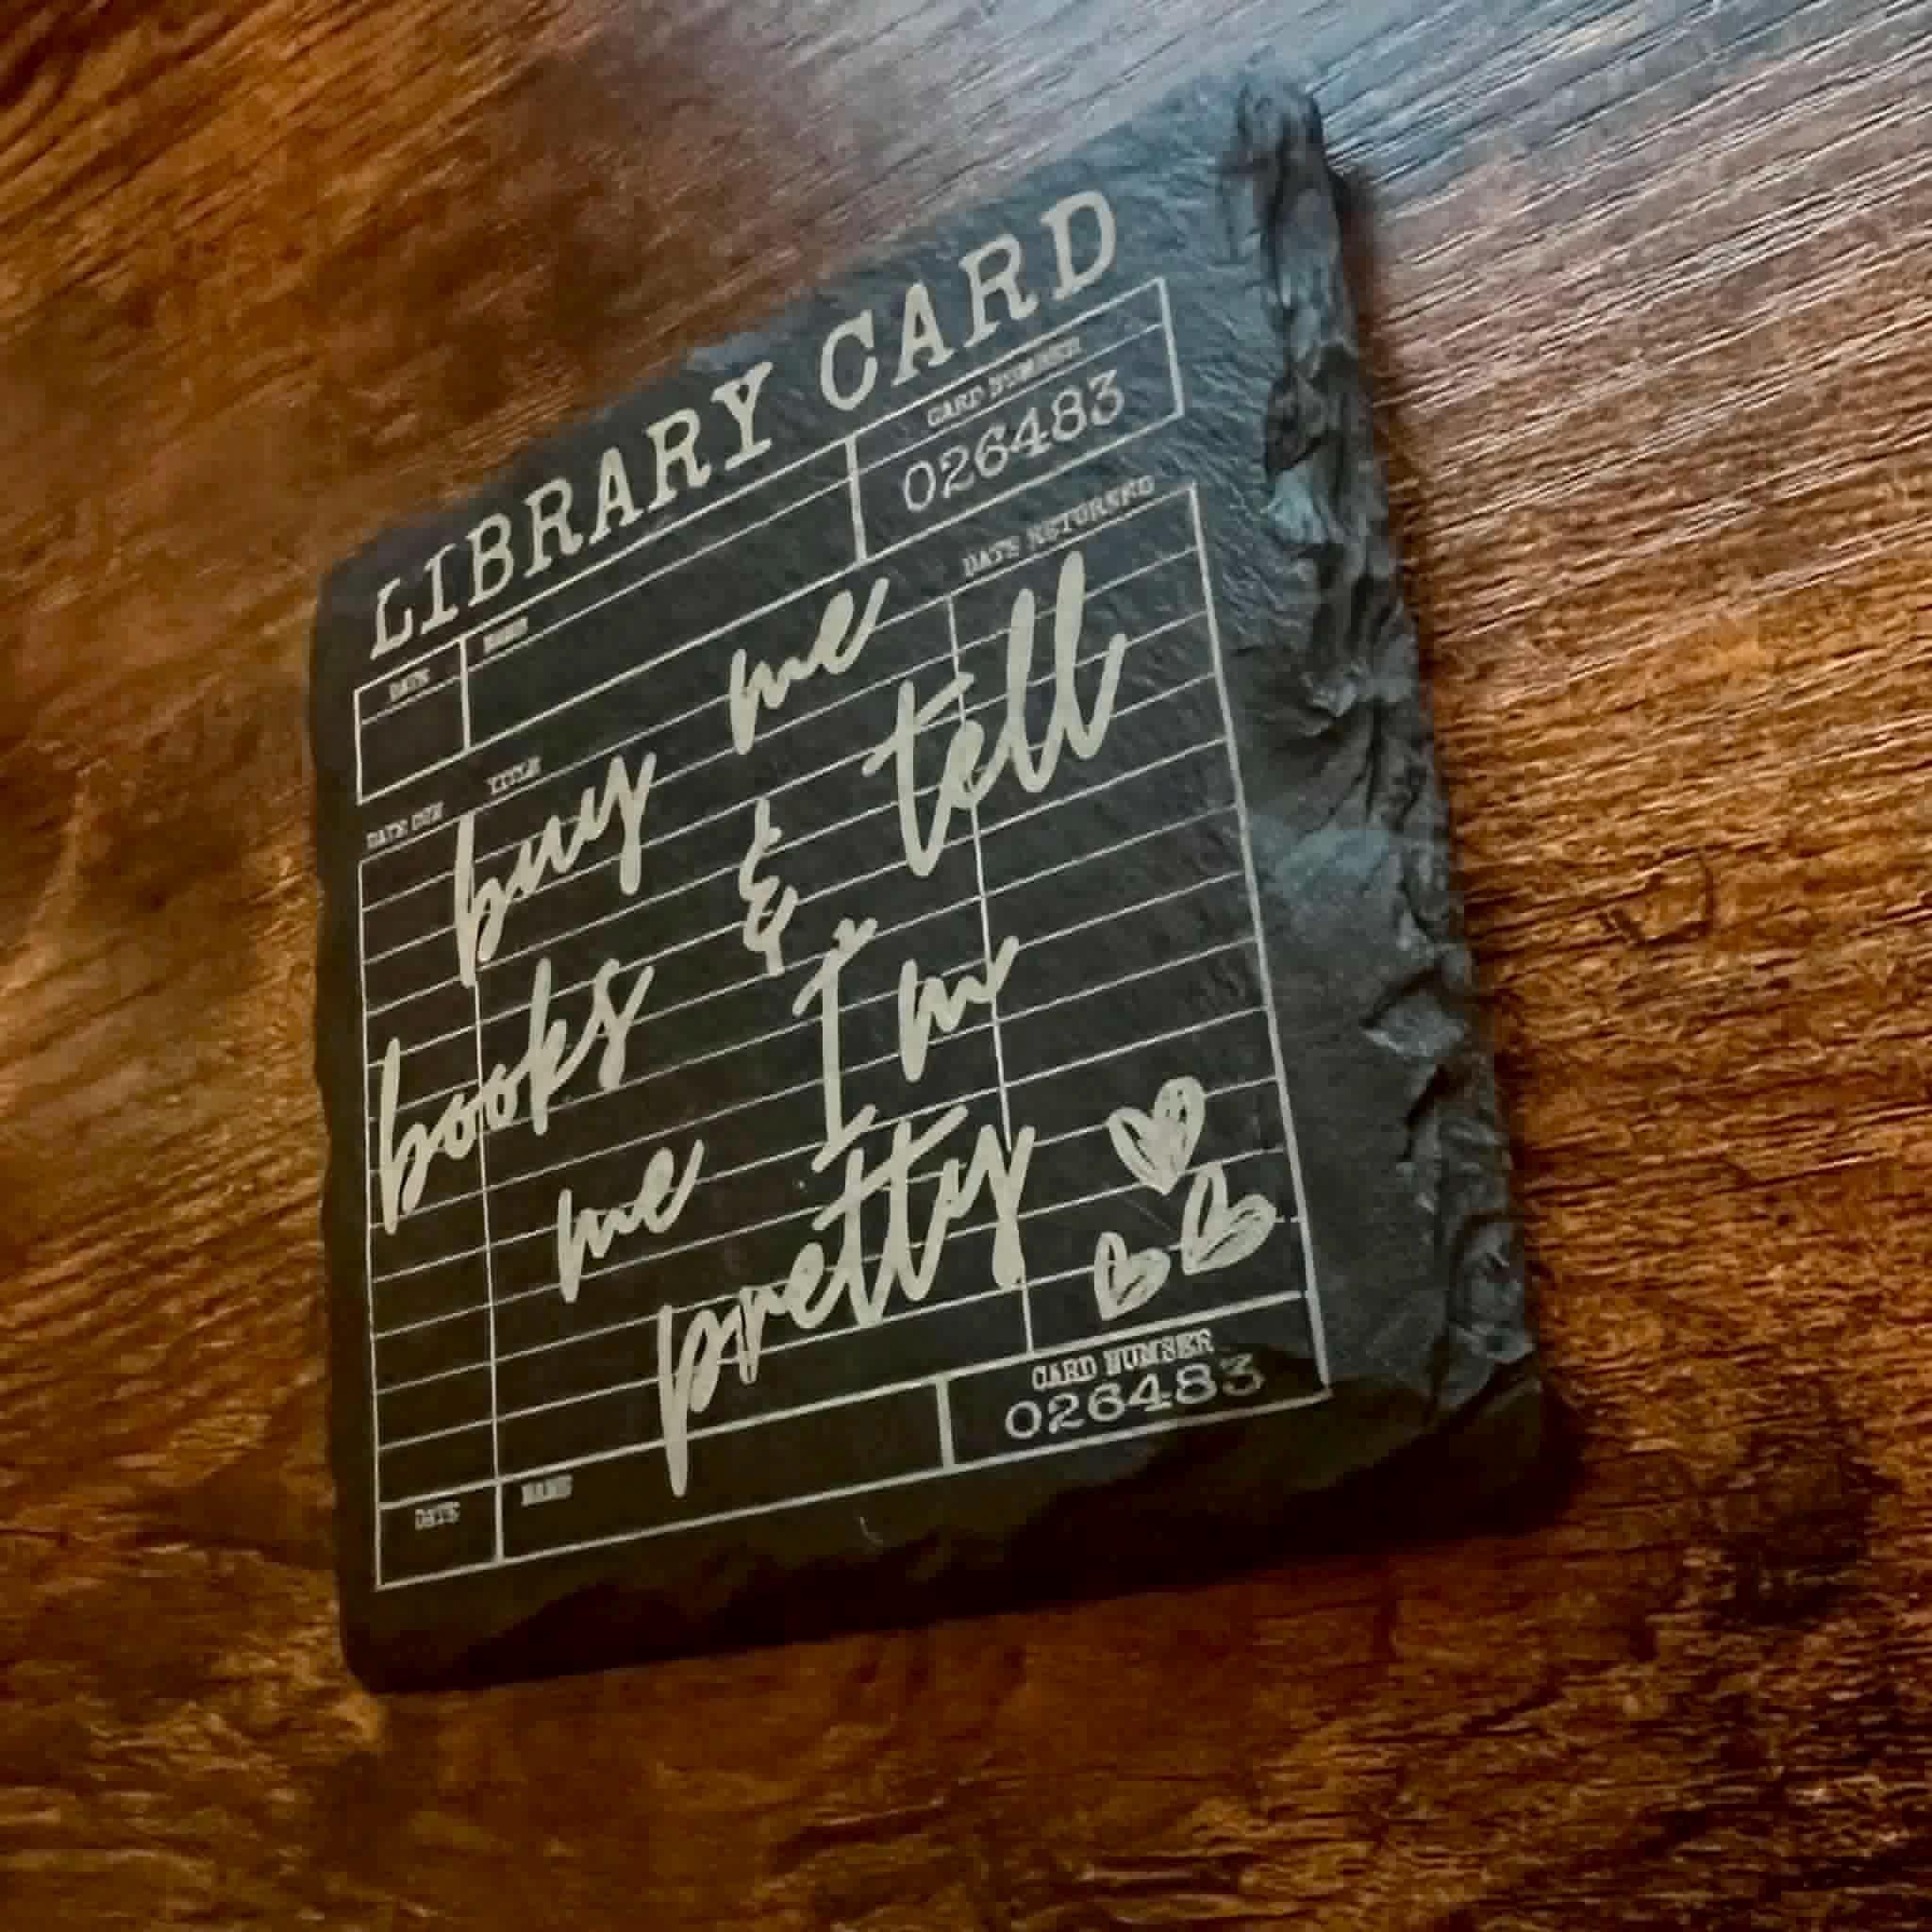 LIBRARY CARD
DATE NAME CARD NUMBER
026483
DATE DUE TITLE DATE RETURNED
buy me
books & tell
me I'm
pretty
CARD NUMBER
026483
DATE NAME